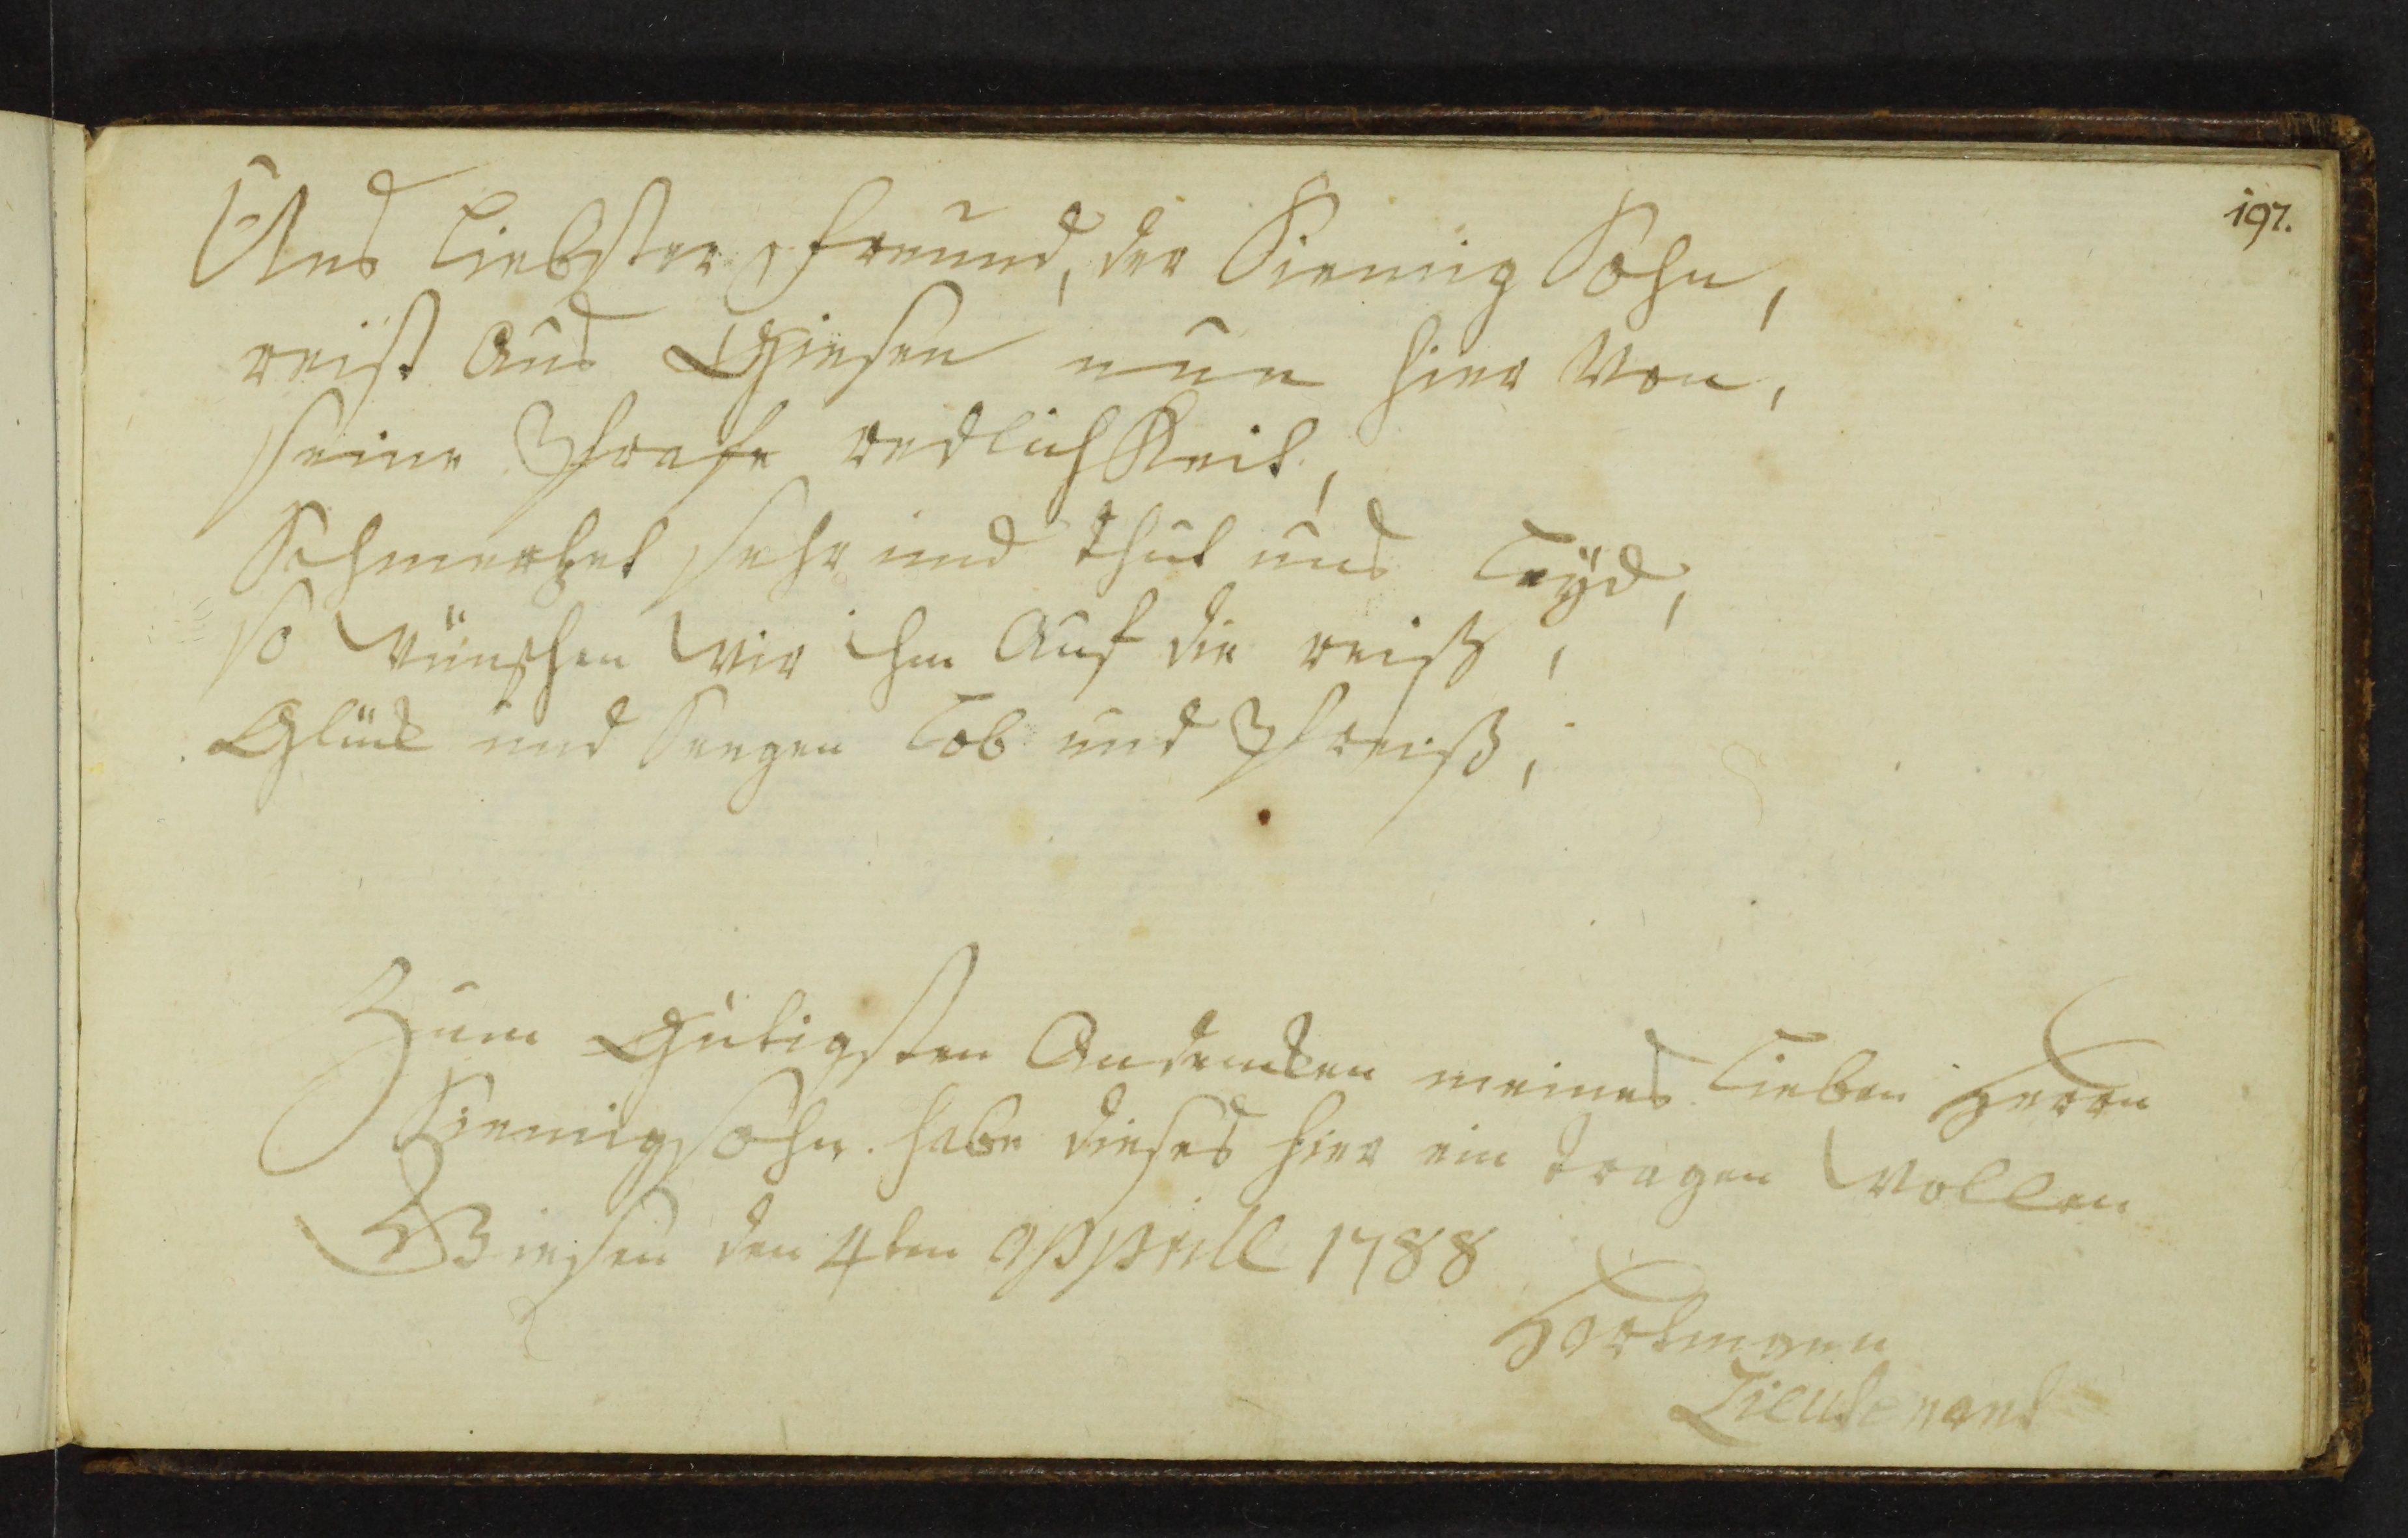 197.
Uns Liebster freund, der Siemig Sohn,
reißt Aus Giesen nun hier Von,
seine Brafe redlichKeit,
Schmertzet sehr und thut uns Leÿd,
so Wünschen Wir ihm Auf die reiß,
Glück und Seegen Lob und Preiß,
Zum Gütigsten Andencken meines Lieben Herrn
Siemigsohn. habe dieses hier ein tragen Wollen
Giesen den 4ten appril 1788
Hartmann
Lieutenant